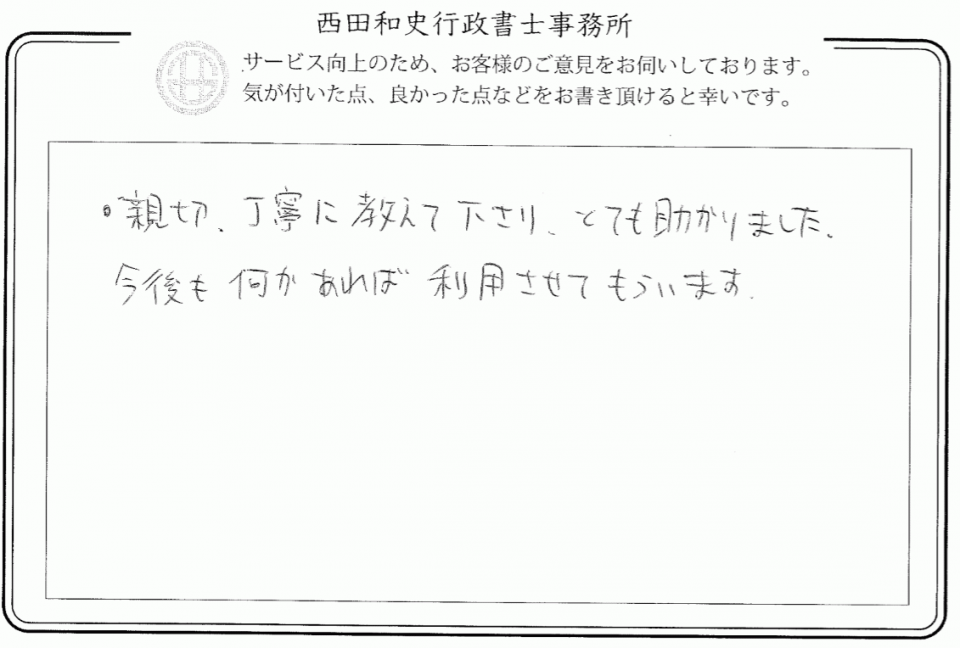 西田和史行政書士事務所
サービス向上のため、お客様のご意見をお伺いしております。
気が付いた点、良かった点などをお書き頂けると幸いです。
・親切、丁寧に教えて下さり、とても助かりました。
今後も何かあれば利用させてもらいます。